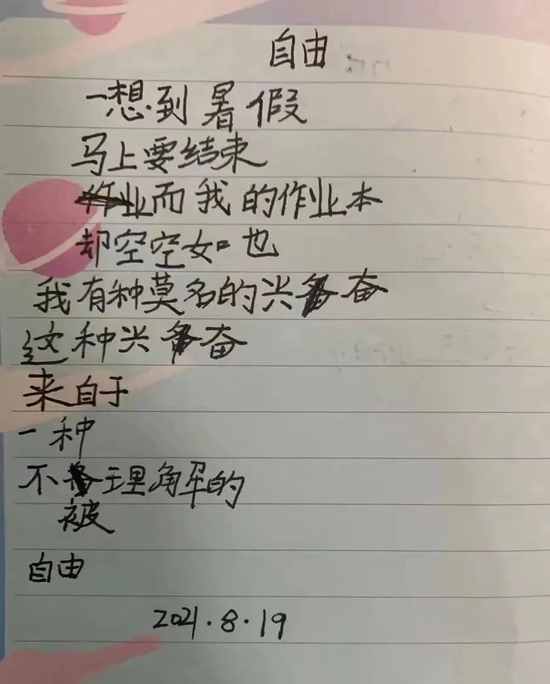 自由
一想到暑假
马上要结束
作业而我的作业本
却空空如也
我有种莫名的兴奋
这种兴奋
来自于
一种
不理解的
被
自由
2021.8.19